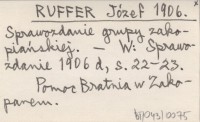 RUFFER Józef 1906.
Sprawozdanie grupy zako-
piańskiej. — W: Sprawo-
zdanie 1906 d, s. 22-23.
Pomoc Bratnia w Zako-
panem.